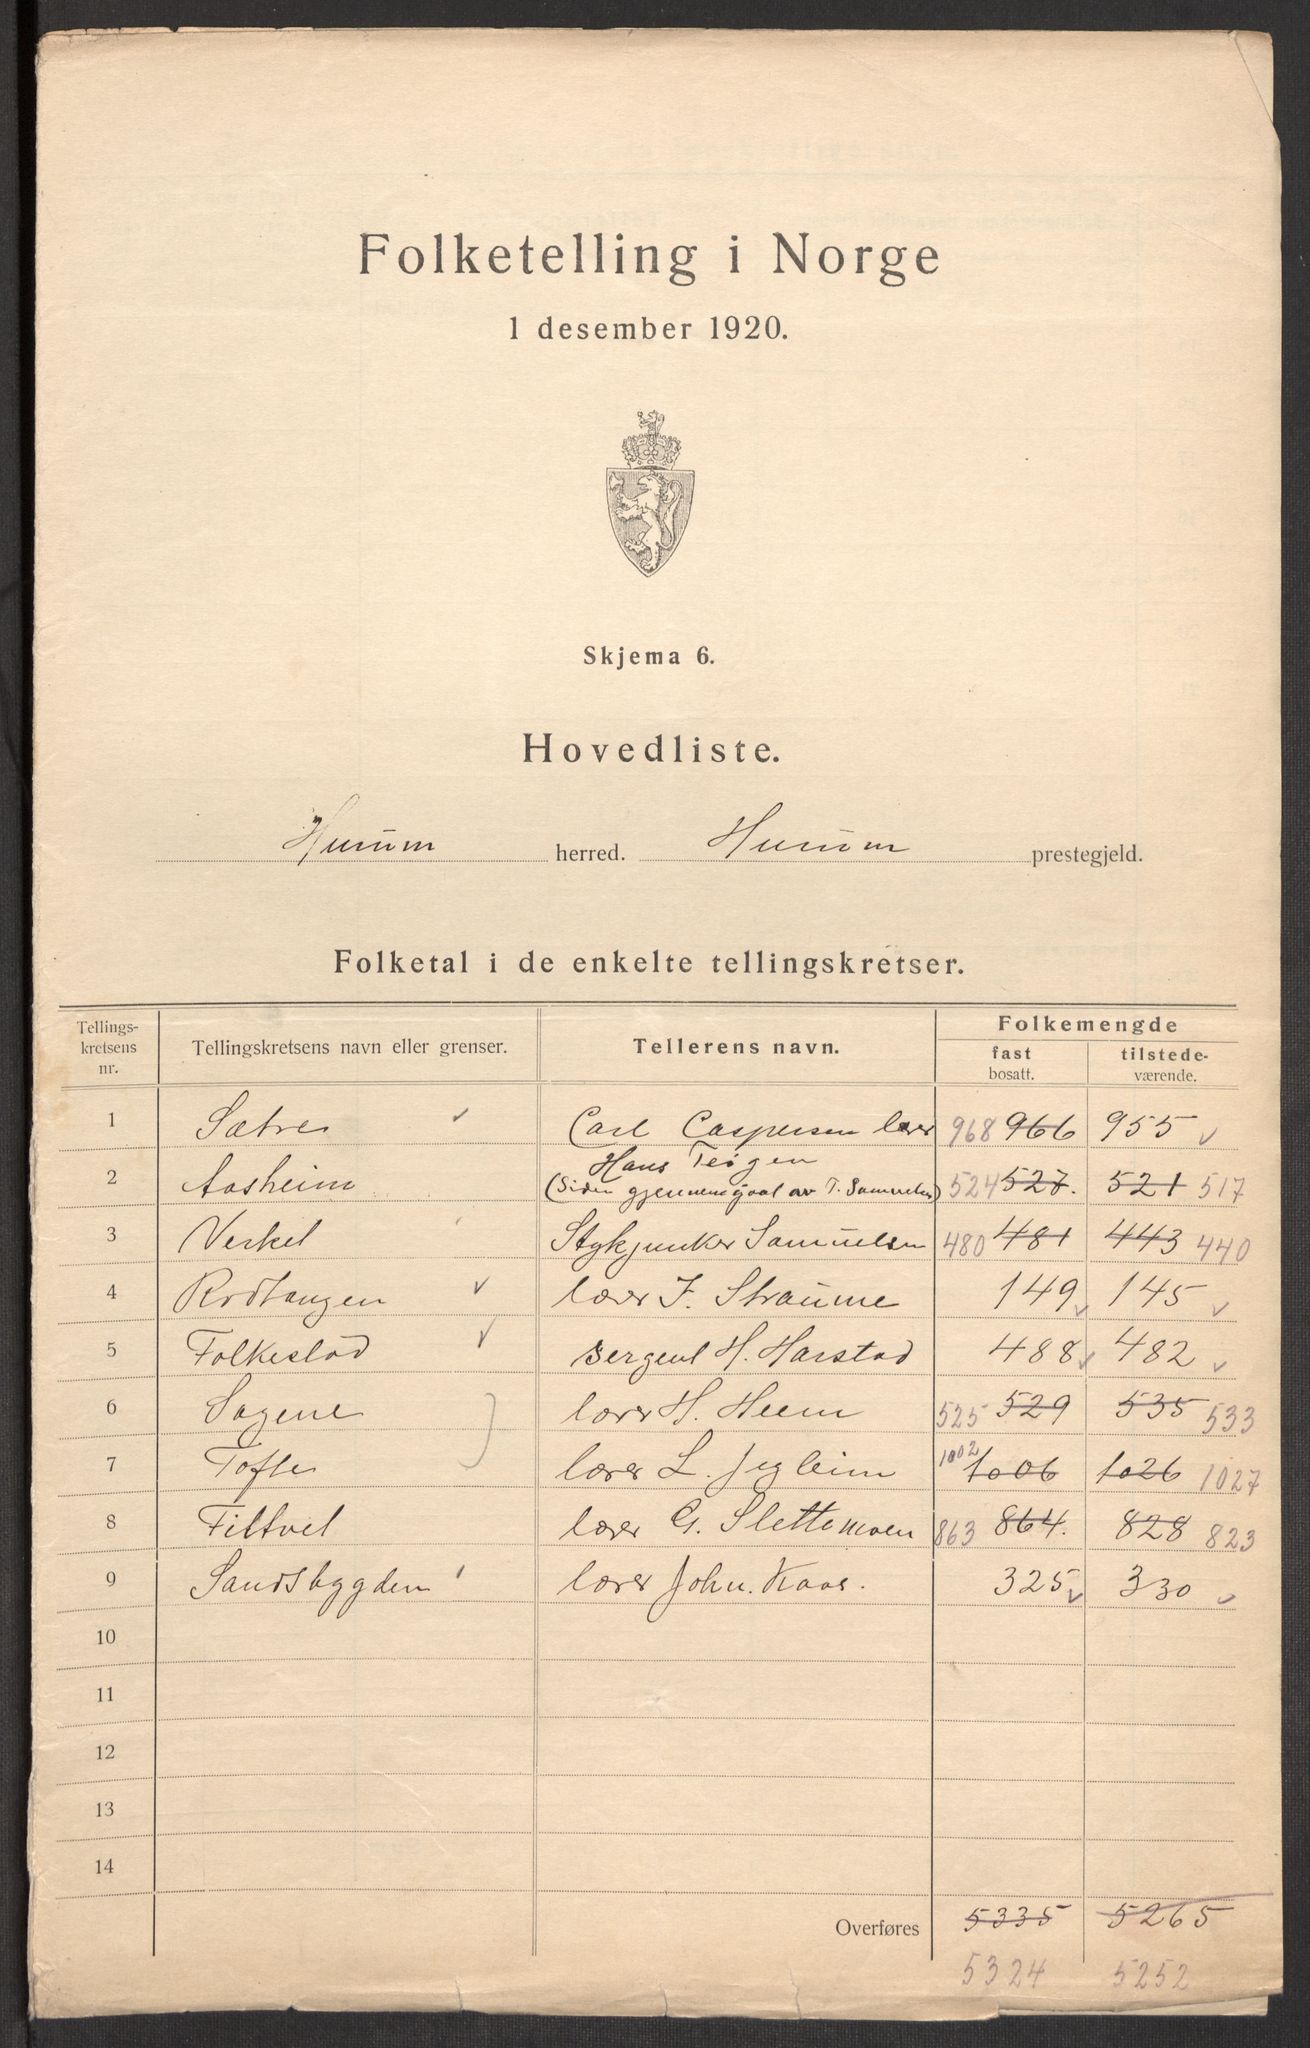 Folketelling i Norge
1 desember 1920.
Skjema 6.
Hovedliste.
Hurum herred. Hurum prestegjeld.
Folketal i de enkelte tellingskretser.
Tellings-kretsens nr. Tellingskretsens navn eller grenser. Tellerens navn. Folkemengde
fast bosatt. tilstede-værende.
1 Sætre Carl Caspersen lærer 968 966 955
2 Aasheim Hans Teigen (Siden gjennemgaat av T. Samuelsen) 524 527. 521 517
3 Verket Stykjunker Samuelsen 480 481 443 440
4 Rødtangen lærer J. Straume 149 145
5 Folkestad Sergent H. Harstad 488 482
6 Sagene lærer H. Heem 525 529 535 533
7 Tofte lærer L. Jegleim 1002 1006 1026 1027
8 Filtvet lærer G. Slettemoen 863 864. 828 823
9 Sandsbygden lærer John. Kaas. 325 330
10
11
12
13
14
Overføres 5335 5265
5324 5252